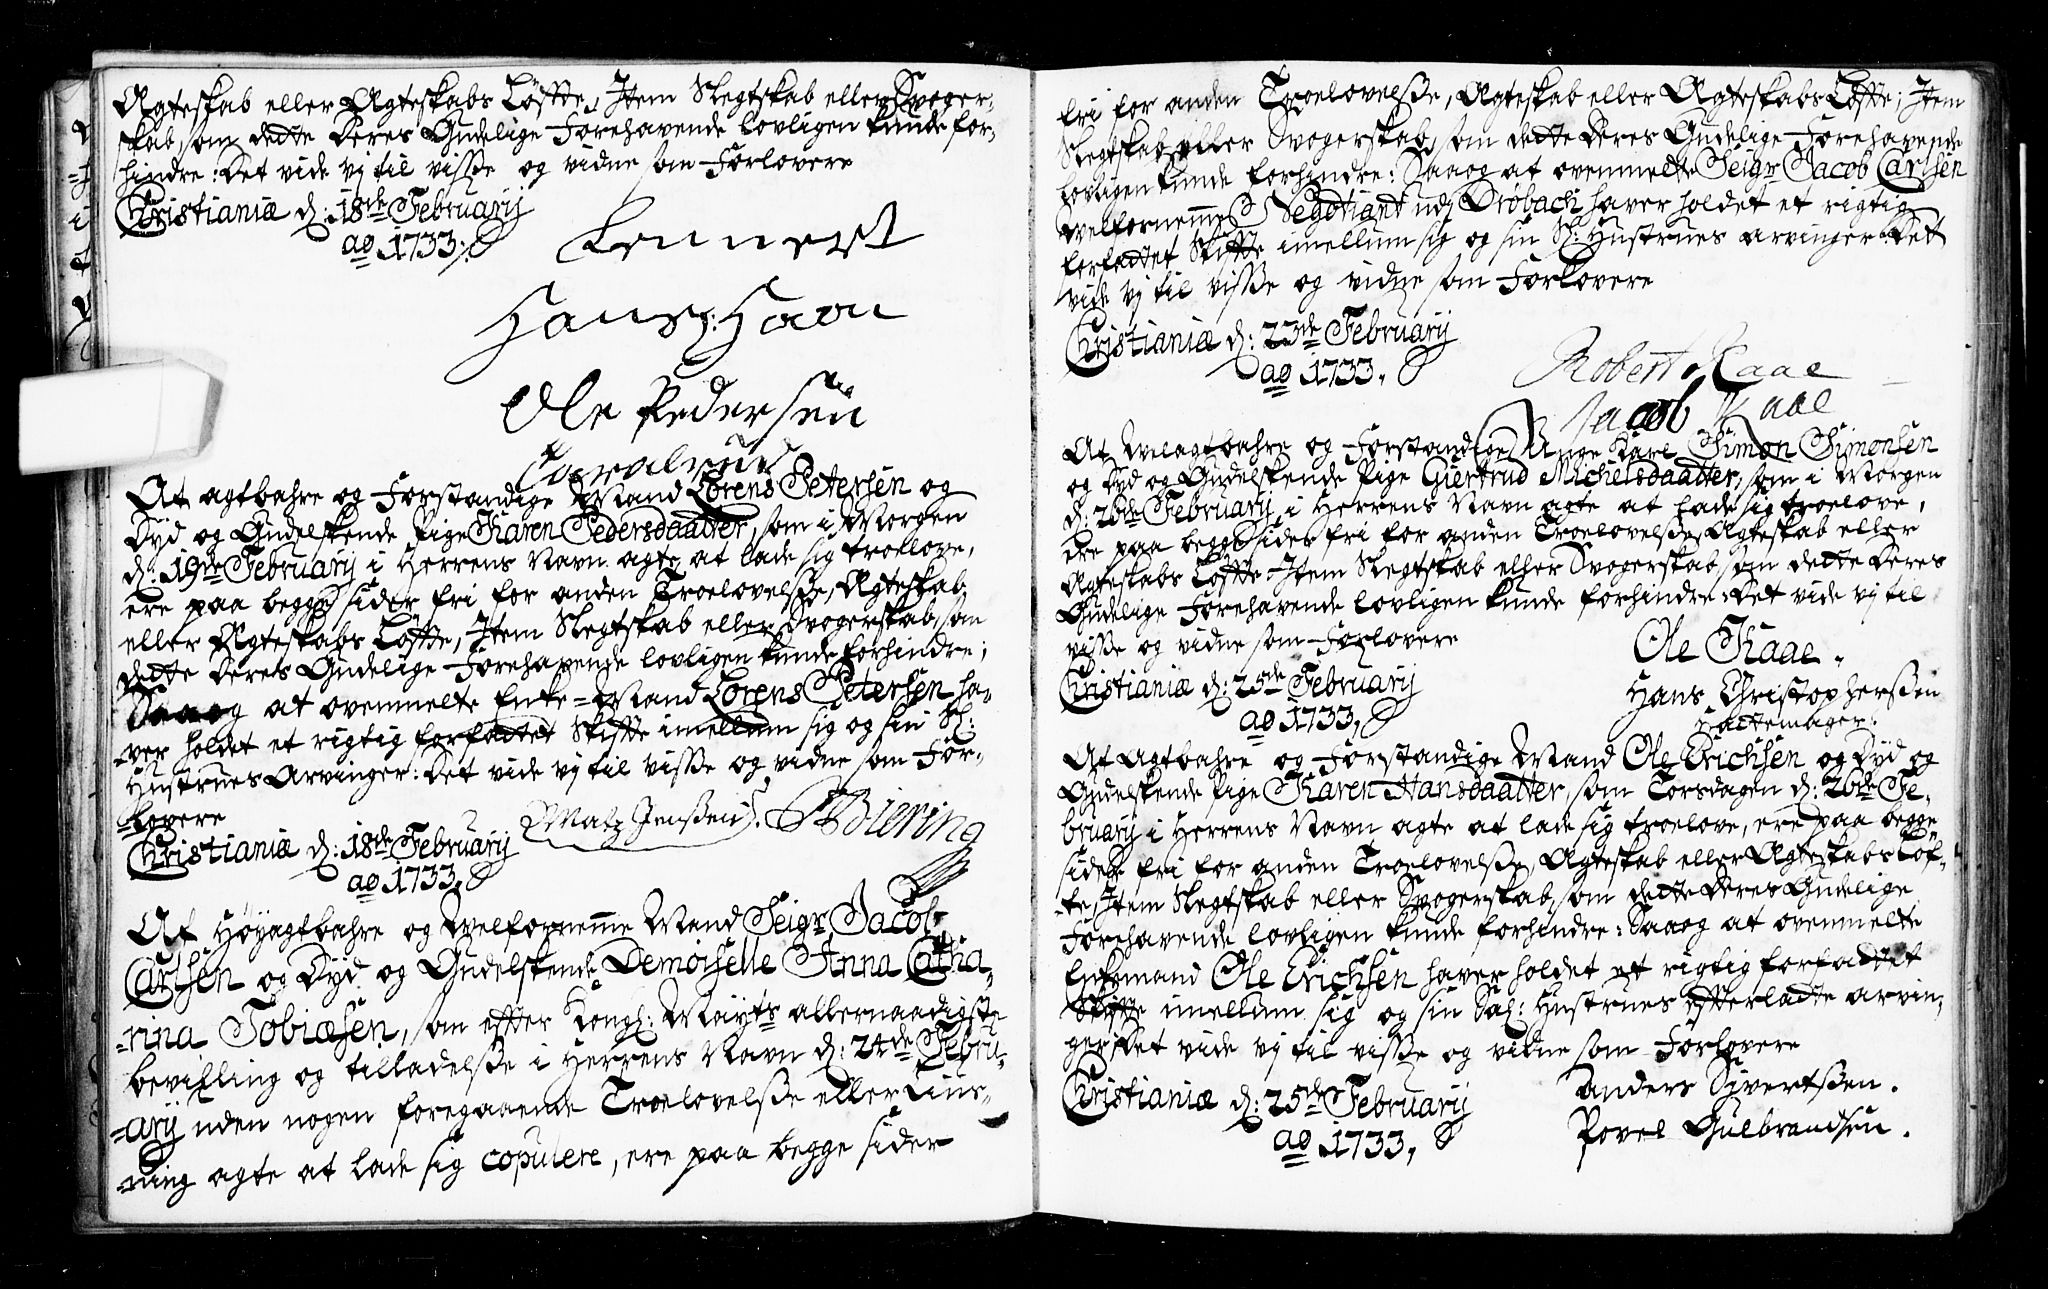 Ægteskab eller Ægteskabs Løffte, Item Slegtskab eller Svoger-
skab, som dette deres Gudelige Forehavende lovligen kunde for-
hindre: Det vide vj til visse og vidne som Forlovere
Christianiæ d: 18de February
ao 1733.
Lennert
Hans: Haon
Ole Pedersen
At agtbahre og Forstandige Mand Lorens Petersen og
Dyd og Gudelskende Pige Karen Pedersdaatter, som i Morgen
d: 19de February i Herrens Navn agte at lade sig troelove,
ere paa begge sider fri for anden Troelovelse, Ægteskab
eller Ægteskabs Løffte, Item Slegtskab eller Svogerskab, som
dette deres Gudelige Forehavende lovligen kunde forhindre;
Saa og at ovenmelte Enke-Mand Lorens Petersen ha-
-ver holdet et rigtig forfattet Skiffte imellum sig og sin Sl:
Hustrues Arvinger: Det vide vj til visse og vidne som For-
-lovere
Christianiæ d: 18de February
ao 1733.
Matz Jenssen. Biering
At Høyagtbahre og Welfornemme Mand Seigr. Jacob
Carlsen og Dyd og Gudelskende Demoiselle Anna Catha-
-rina Tobiæsen, som effter Kongl: Mayts allernaadigste
bevilling og tilladelse i Herrens Navn d: 24de Febru-
-ary uden nogen foregaaende Troelovelse eller Lius-
-ning agte at lade sig copulere, ere paa begge sider
fri for anden Troelovelse, Ægteskab eller Ægteskabs Løffte; Item
Slegtskab eller Svogerskab, som dette deres Gudelige Forehavende
lovligen kunde forhindre: Saa og at ovenmelte Seigr Jacob Carlsen
Welfornemme Negotiant udj Drøbach haver holdet et rigtig
forfattet Skiffte imellum sig og sin Sl: Hustrues arvinger: Det
vide vj til visse og vidne som Forlovere
Christianiæ d: 23de February
ao 1733.
Robert Kaae
Jacob Kaae
At Welagtbahre og Forstandige Unge Karl Simon Simonsen
og Dyd og Gudelskende Pige Giertrud Michelsdaatter, som i Morgen
d: 26de February i Herrens Navn agte at lade sig troelove,
ere paa begge sider fri for anden Troelovelse, Ægteskab eller
Ægteskabs Løffte Item Slegtskab eller Svogerskab, som dette deres
Gudelige Forehavende lovligen kunde forhindre: Det vide vj til
visse og vidne som Forlovere
Christianiæ d: 25de February
ao 1733.
Ole Kaae.
Hans Christophersen
Hattemager:
At Agtbahre og Forstandige Mand Ole Erichsen og Dyd og
Gudelskende Pige Karen Hansdaatter, som Torsdagen d: 26de Fe-
bruary i Herrens Navn agte at lade sig troelove, ere paa begge
sider fri for anden Troelovelse, Ægteskab eller Ægteskabs Løf-
-te, Item Slegtskab eller Svogerskab, som dette deres Gudelige
Forehavende lovligen kunde forhindre: Saa og at ovenmelte
Enkemand Ole Erichsen haver holdet et rigtig forfattet
Skiffte imellum sig og sin Sal: Hustrues effterladte arvin-
ger: Det vide vj til visse og vidne som Forlovere
Christianiæ d: 25de February
ao 1733.
Anders Sivertssen.
Povel Gulbrandsen.